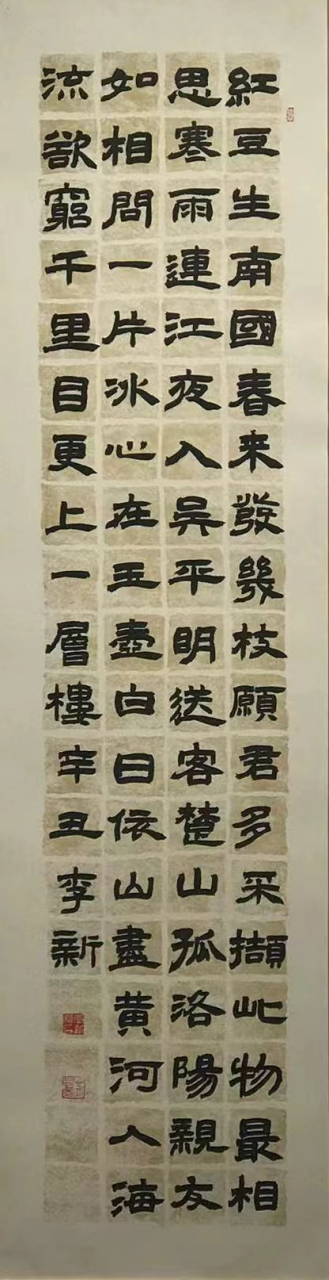 紅豆生南國春来發幾枝願君多采擷此物最相
思寒雨連江夜入吳平明送客楚山孤洛陽親友
如相問一片冰心在玉壺白日依山盡黄河入海
流欲窮千里目更上一層樓辛丑李新